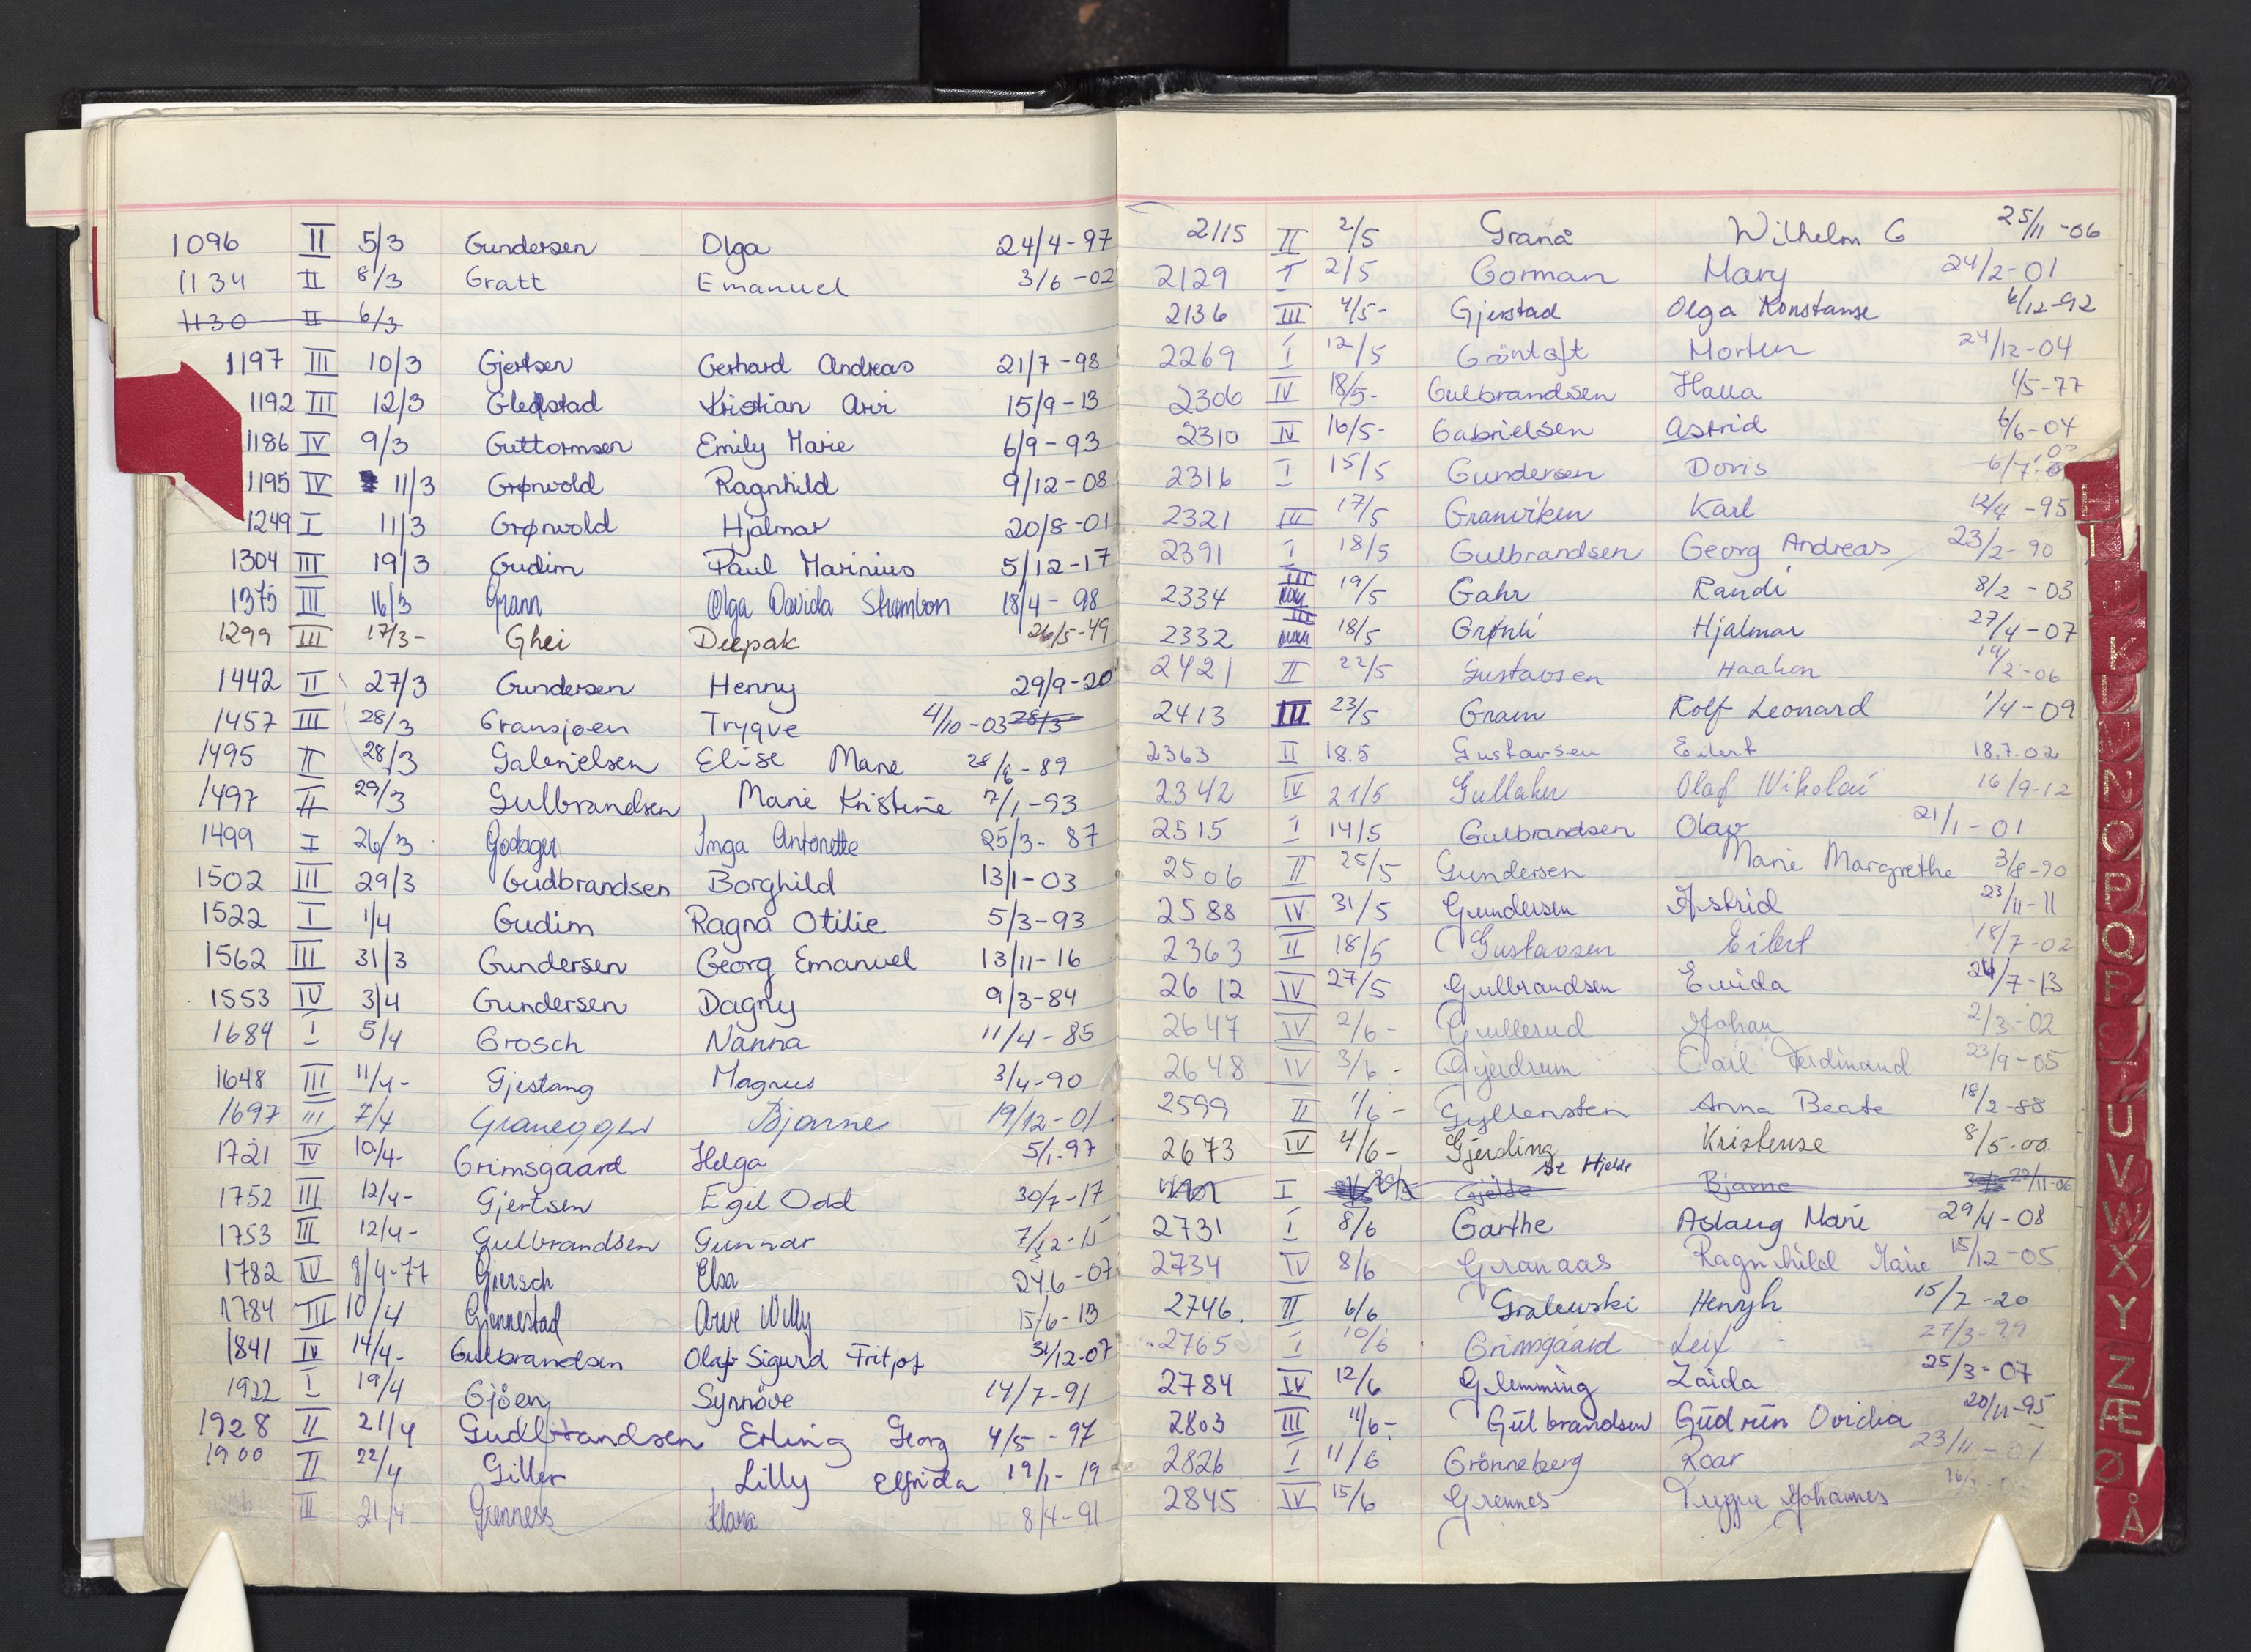 1096 II 5/3 Gundersen Olga 24/4-97
1134 II 8/3 Gratt Emanuel 3/6-02
1130 II 6/3
1197 III 10/3 Gjertsen Gerhard Andreas 21/7-98
1192 III 12/3 Gledstad Kristian Arvi 15/9-13
1186 IV 9/3 Guttormsen Emily Marie 6/9-93
1195 IV 11/3 Grønvold Ragnhild 9/12-08
1249 I 11/3 Grønvold Hjalmar 20/8-01
1304 III 19/3 Gudim Paul Marinius 5/12-17
1375 III 16/3 Grann Olga Davida 18/4-98
1299 III 17/3- Ghei Deepak 26/5-49
1442 II 27/3 Gundersen Henny 29/9-20
1457 III 28/3 Gransjoen Trygve 4/10-03 28/3
1495 II 28/3 Gabrielsen Elise Marie 28/6-89
1497 II 29/3 Gulbrandsen Marie Kristine 7/1-93
1499 I 26/3 Godager Inga Antonette 25/3-87
1502 III 29/3 Gudbrandsen Borghild 13/1-03
1522 I 1/4 Gudim Ragna Otilie 5/3-93
1562 III 31/3 Gundersen Georg Emanuel 13/11-16
1553 IV 3/4 Gundersen Dagny 9/3-84
1684 I 5/4 Grosch Nanna 11/4-85
1648 III 11/4- Gjestang Magnus 3/4-90
1697 III 7/4 Granegger Bjarne 19/12-01
1721 IV 10/4- Grimsgaard Helga 5/1-97
1752 III 12/4- Gjertsen Egil Odd 30/7-17
1753 III 12/4- Gulbrandsen Gunnar 7/12-15
1782 IV 8/4-77 Giersch Elsa 24/6-07
1784 III 10/4 Gjennestad Arve Willy 15/6-13
1841 IV 14/4- Gulbrandsen Olaf Sigurd Fritjof 31/12-07
1922 I 19/4 Gjöen Synnöve 14/7-91
1928 II 21/4 Gudbrandsen Erling Georg 4/5-97
1900 II 22/4 Giller Lilly Elfrida 19/1-19
III 21/4 Grenness Klara 8/4-91
2115 II 2/5 Granå Wilhelm G 25/11-06
2129 I 2/5 Gorman Mary 24/2-01
2136 III 4/5- Gjerstad Olga Konstanse 4/12-92
2269 I 12/5 Gröntoft Morten 24/12-04
2306 IV 18/5- Gulbrandsen Halla 1/5-77
2310 IV 16/5- Gabrielsen Astrid 6/6-04
2316 I 15/5 Gundersen Doris
2321 III 17/5 Granviken Karl 12/4-95
2391 I 18/5 Gulbrandsen Georg Andreas 23/2-90
2334 III 19/5 Gahr Randi 8/2-03
2332 III 18/5 Grønli Hjalmar 27/4-07
2421 II 22/5 Gustavsen Haakon 19/2-06
2413 III 23/5 Gram Rolf Leonard 1/4-09
2363 II 18.5 Gustavsen Eilert 18.7.02
2342 IV 21/5 Gullaker Olaf Nikolai 16/9-12
2515 I 14/5 Gulbrandsen Olav 21/1-01
2506 II 25/5 Gundersen Marie Margrethe 3/8-90
2588 IV 31/5 Gundersen Astrid 23/11-11
2363 II 18/5 Gustavsen Eilert 18/7-02
2612 IV 27/5 Gulbrandsen Evida 24/7-13
2647 IV 2/6- Gullerud Johan 2/3-02
2648 IV 3/6- Gjerdrum Carl Ferdinand 23/9-05
2599 II 1/6- Gyllensten Anna Beate 18/2-88
2673 IV 4/6- Gjerding Kristense 8/5-00
se Hjelde
I Gjelde Bjarne 22/11-06
2731 I 8/6 Garthe Aslaug Marie 29/4-08
2734 IV 8/6 Granaas Ragnhild Marie 15/12-05
2746. II 6/6 Gralewski Henryk 15/7-20
2765 I 10/6 Grimsgaard Leif 27/3-99
2784 IV 12/6 Glemming Zaida 25/3-07
2803 III 11/6- Gulbrandsen Gudrun Ovidia 20/11-95
2826 I 11/6 Grönneberg Roar 23/11-01
2845 IV 15/6 Grennes Trygve Johannes
H
I
J
K
L
M
N
O
P
Q
R
S
T
U
V
W
X
Y
Z
Æ
Ø
Å